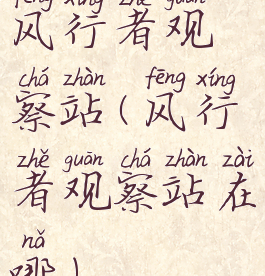 fēng xíng zhě guān
风行者观
chá zhàn fēng xíng
察站(风行
zhě guān chá zhàn zài
者观察站在
nǎ
哪)